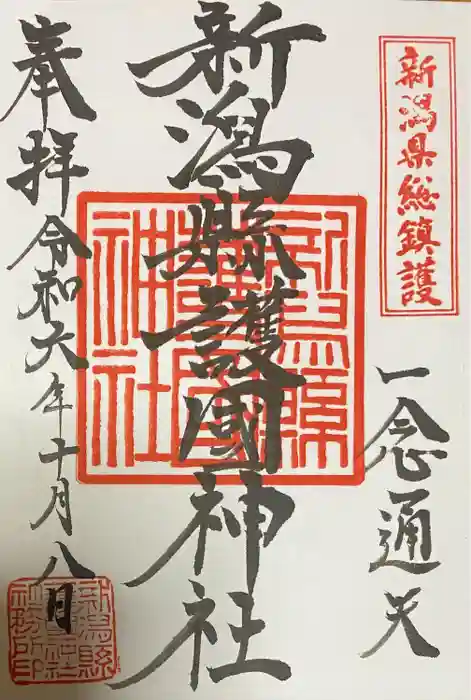 新潟県総鎮護
一念通天
新潟縣護國神社
新潟縣護國神社
奉拝
令和六年十月八日
新潟縣護國神社社務所印